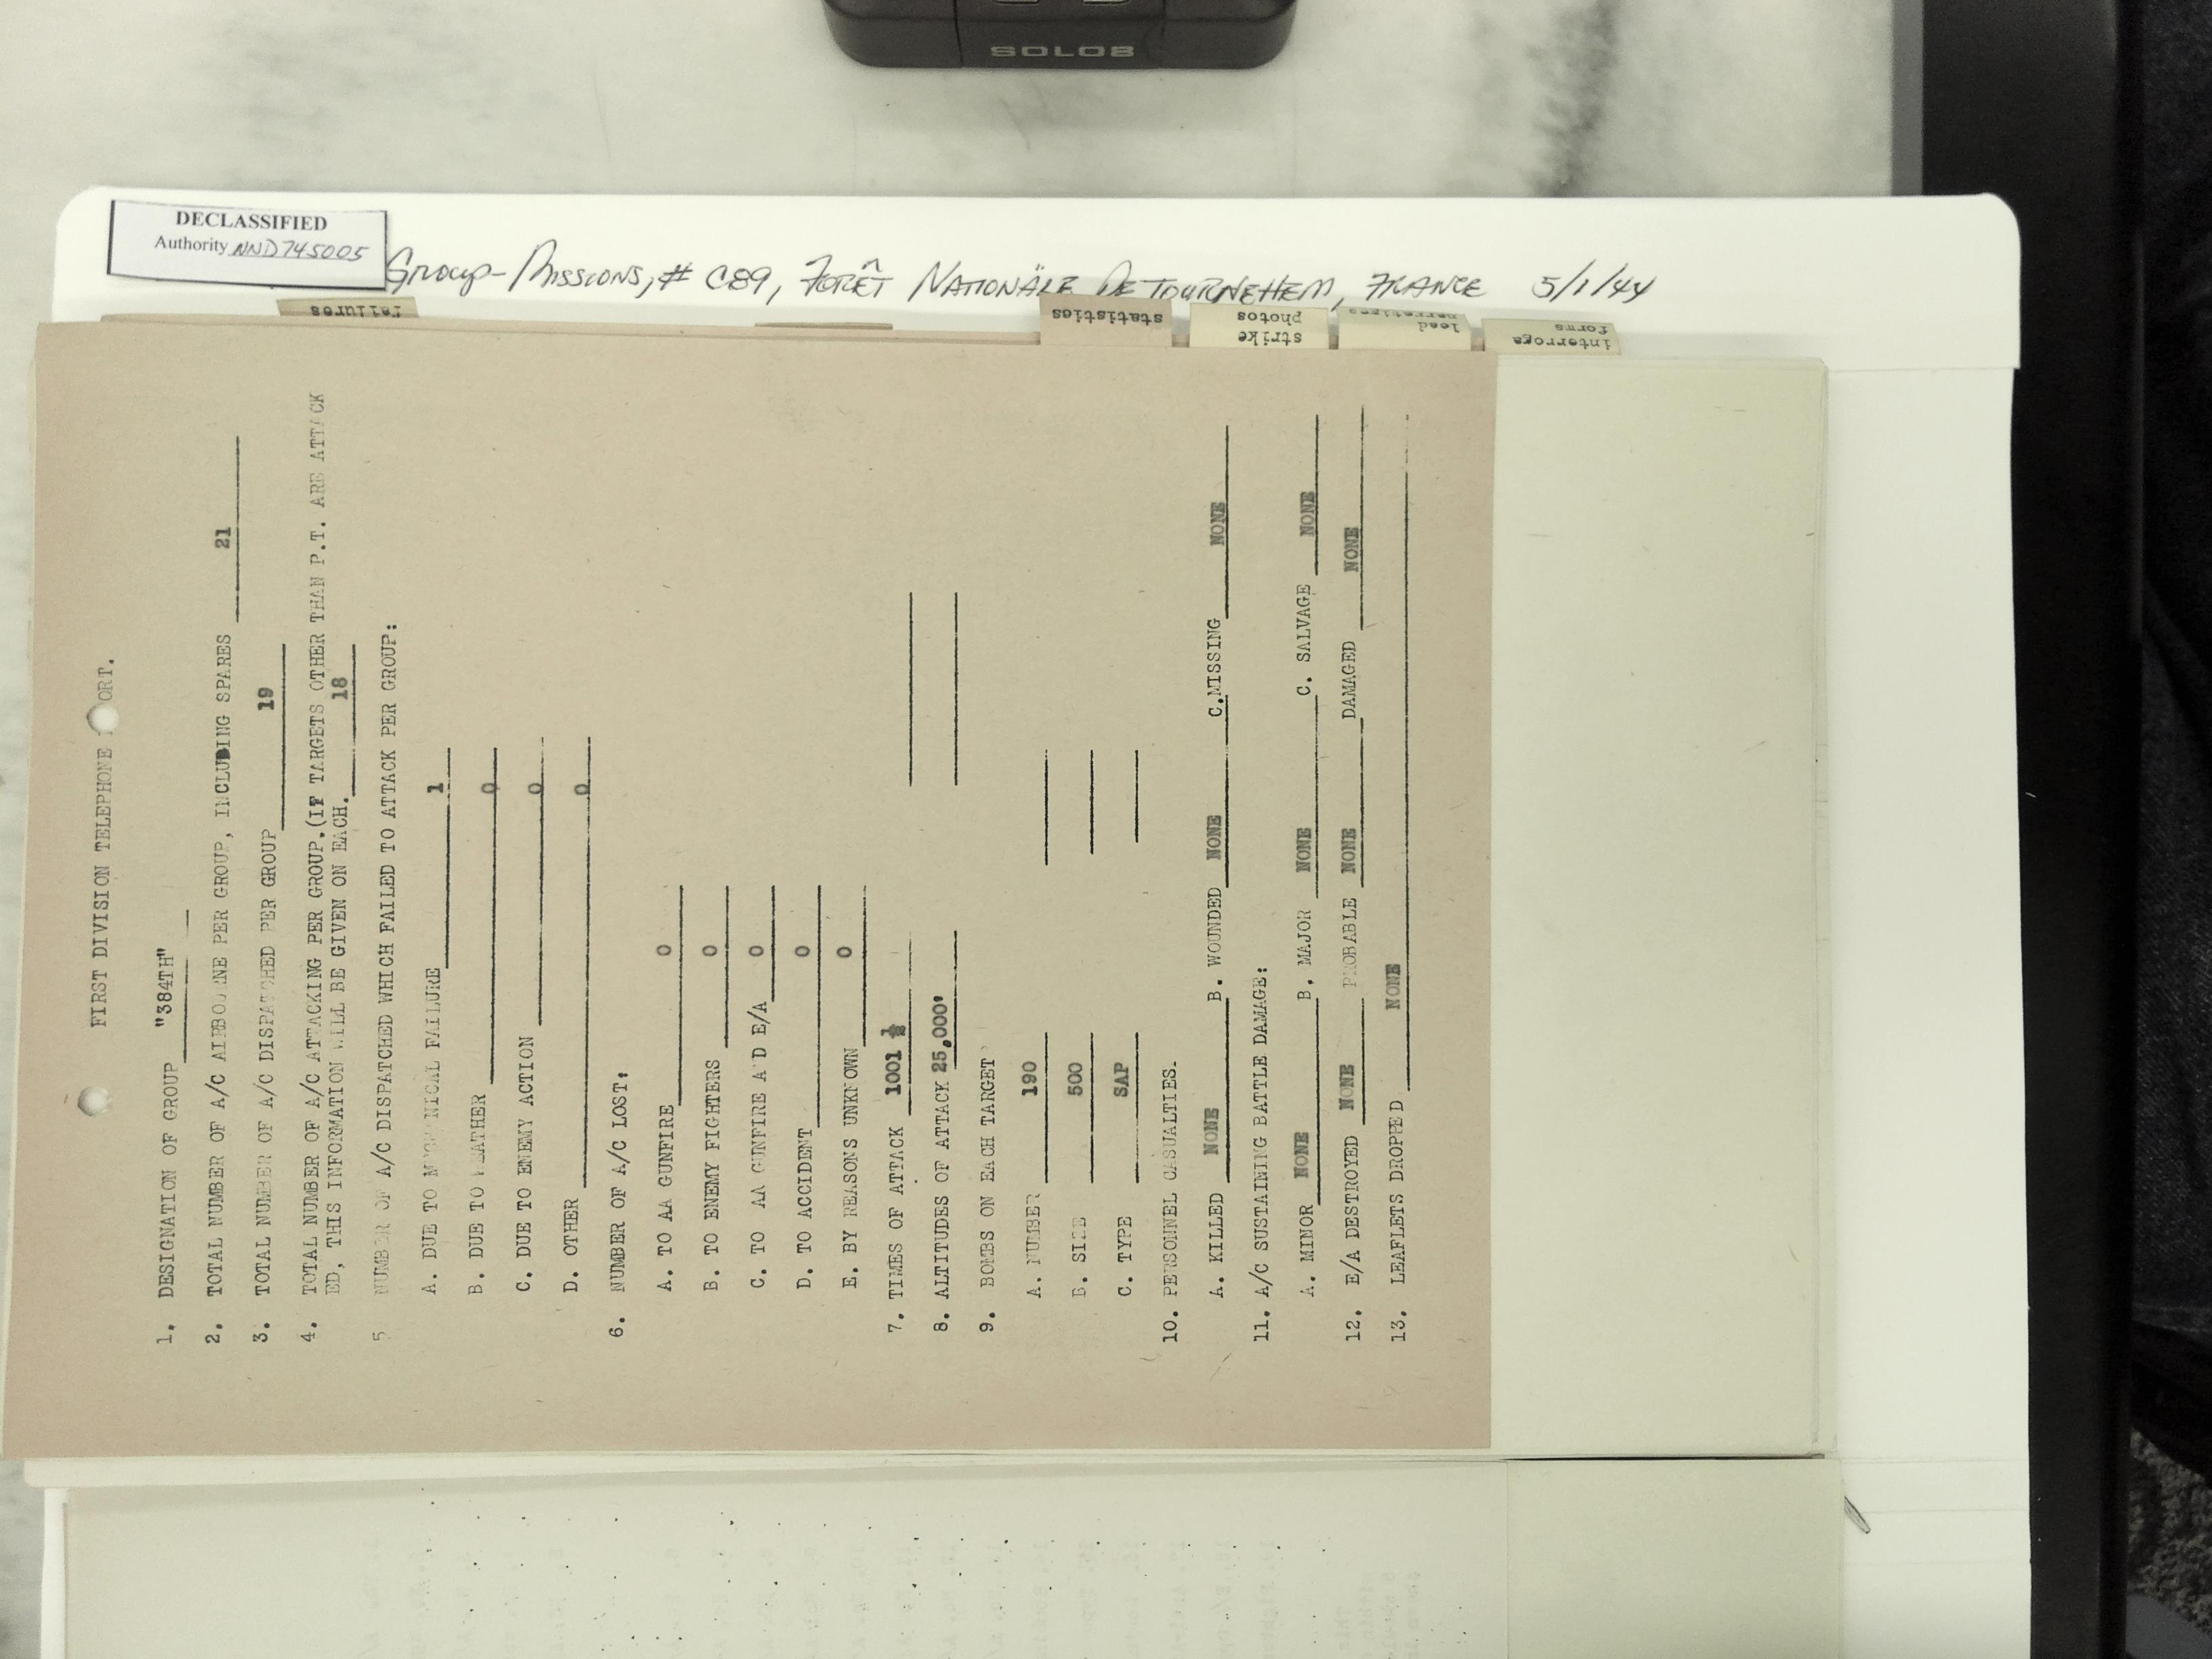 SOLO8
DECLASSIFIED
Authority NND745005
Group-Missions, # C89, Forêt Nationäle De Tournehem, France 5/1/44
failures
statistics
strike
photos
lead
narratives
interroga
forms
FIRST DIVISION TELEPHONE ORT.
1. DESIGNATION OF GROUP "384TH"
2. TOTAL NUMBER OF A/C AIRBORNE PER GROUP, INCLUDING SPARES 21
3. TOTAL NUMBER OF A/C DISPATCHED PER GROUP 19
4. TOTAL NUMBER OF A/C ATTACKING PER GROUP.(IF TARGETS OTHER THAN P.T. ARE ATTACK
ED, THIS INFORMATION WILL BE GIVEN ON EACH. 18
5 NUMBER OF A/C DISPATCHED WHICH FAILED TO ATTACK PER GROUP:
A. DUE TO MECHANICAL FAILURE 1
B. DUE TO WEATHER 0
C. DUE TO ENEMY ACTION 0
D. OTHER 0
6. NUMBER OF A/C LOST:
A. TO AA GUNFIRE 0
B. TO ENEMY FIGHTERS 0
C. TO AA GUNFIRE A D E/A 0
D. TO ACCIDENT 0
E. BY REASONS UNKNOWN 0
7. TIMES OF ATTACK 1001 ½
8. ALTITUDES OF ATTACK 25,000'
9. BOMBS ON EACH TARGET
A. NUMBER 190
B. SIZE 500
C. TYPE SAP
10. PERSONNEL CASUALTIES.
A. KILLED NONE B. WOUNDED NONE C.MISSING NONE
11. A/C SUSTAINING BATTLE DAMAGE:
A. MINOR NONE B. MAJOR NONE C. SALVAGE NONE
12. E/A DESTROYED NONE PROBABLE NONE DAMAGED NONE
13. LEAFLETS DROPPED NONE